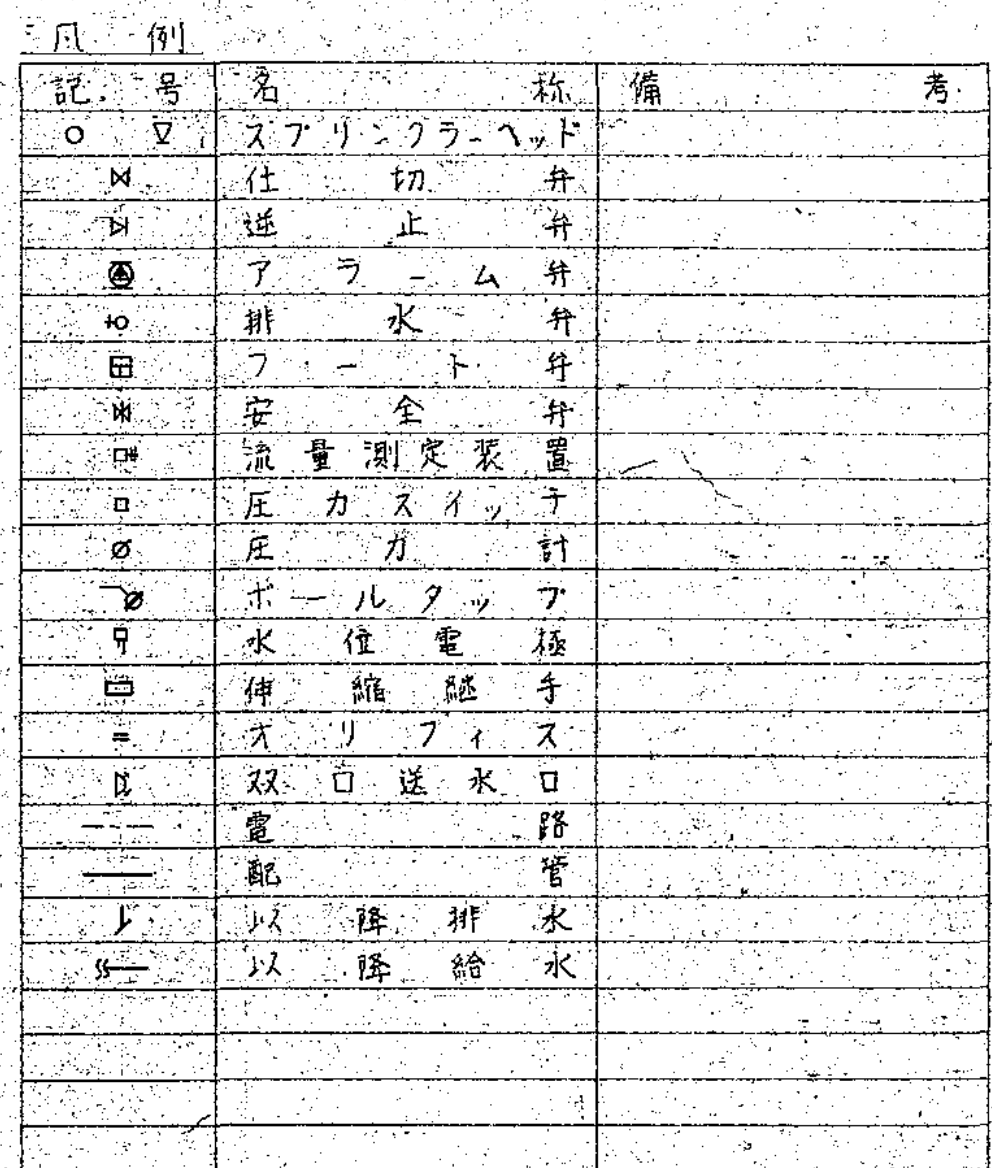 凡例
記号 名称 備考
スプリンクラーヘッド
仕切弁
逆止弁
アラーム弁
排水弁
フート弁
安全弁
流量測定装置
圧力スイッチ
圧力計
ボールタップ
水位電極
伸縮継手
オリフィス
双口送水口
電路
配管
以降排水
以降給水